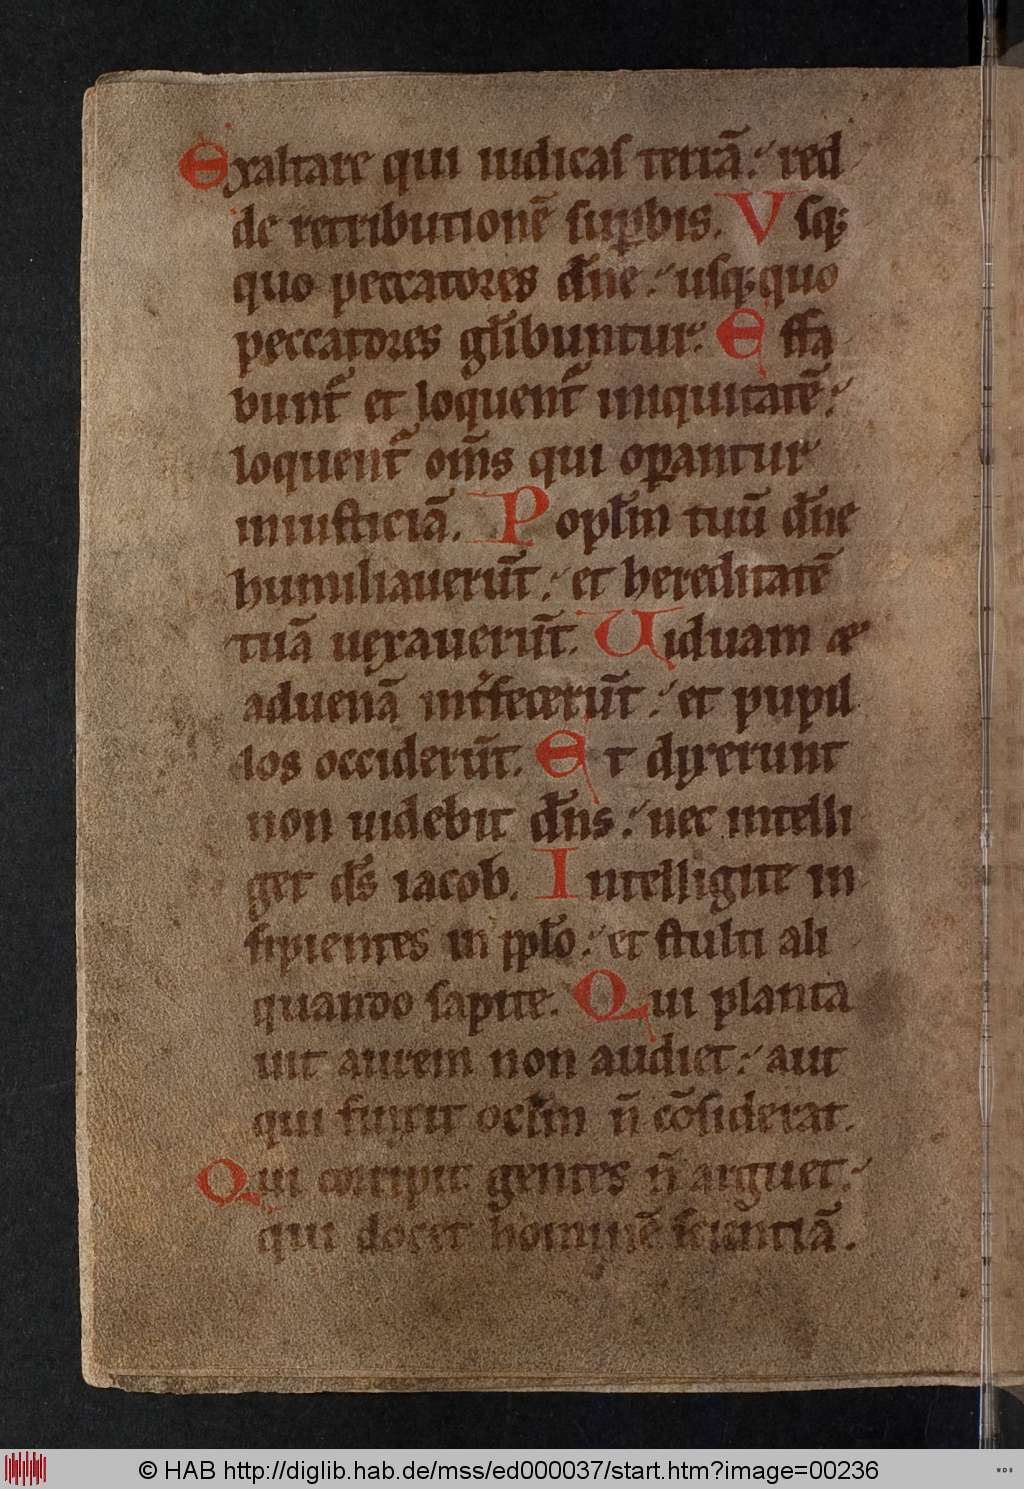 Exaltare qui iudicas terrā : red
de retributionē suꝑbis. Vsq;
quo peccatores dn̄e : usq;quo
peccatores gl̄ibuntur. Effa
bunt̄ et loquent̄ iniquitatē :
loquent̄ om̄s qui oꝑantur
iniusticiā. Popl̄m tuū dn̄e
humiliauerūt : et hereditatē
tuā uexauerūt. Uiduam &
aduenā int̄fecerūt : et pupil
los occiderūt. Et dixerunt
non uidebit dn̄s : nec intelli
get ds̄ iacob. Intelligite in
sipientes in ppl̄o : et stulti ali
quando sapite. Qui planta
uit aurem non audiet : aut
qui finxit ocl̄m n̄ cōsiderat.
Qui corripit gentes n̄ arguet :
qui docet hominē scientiā.
© HAB http://diglib.hab.de/mss/ed000037/start.htm?image=00236